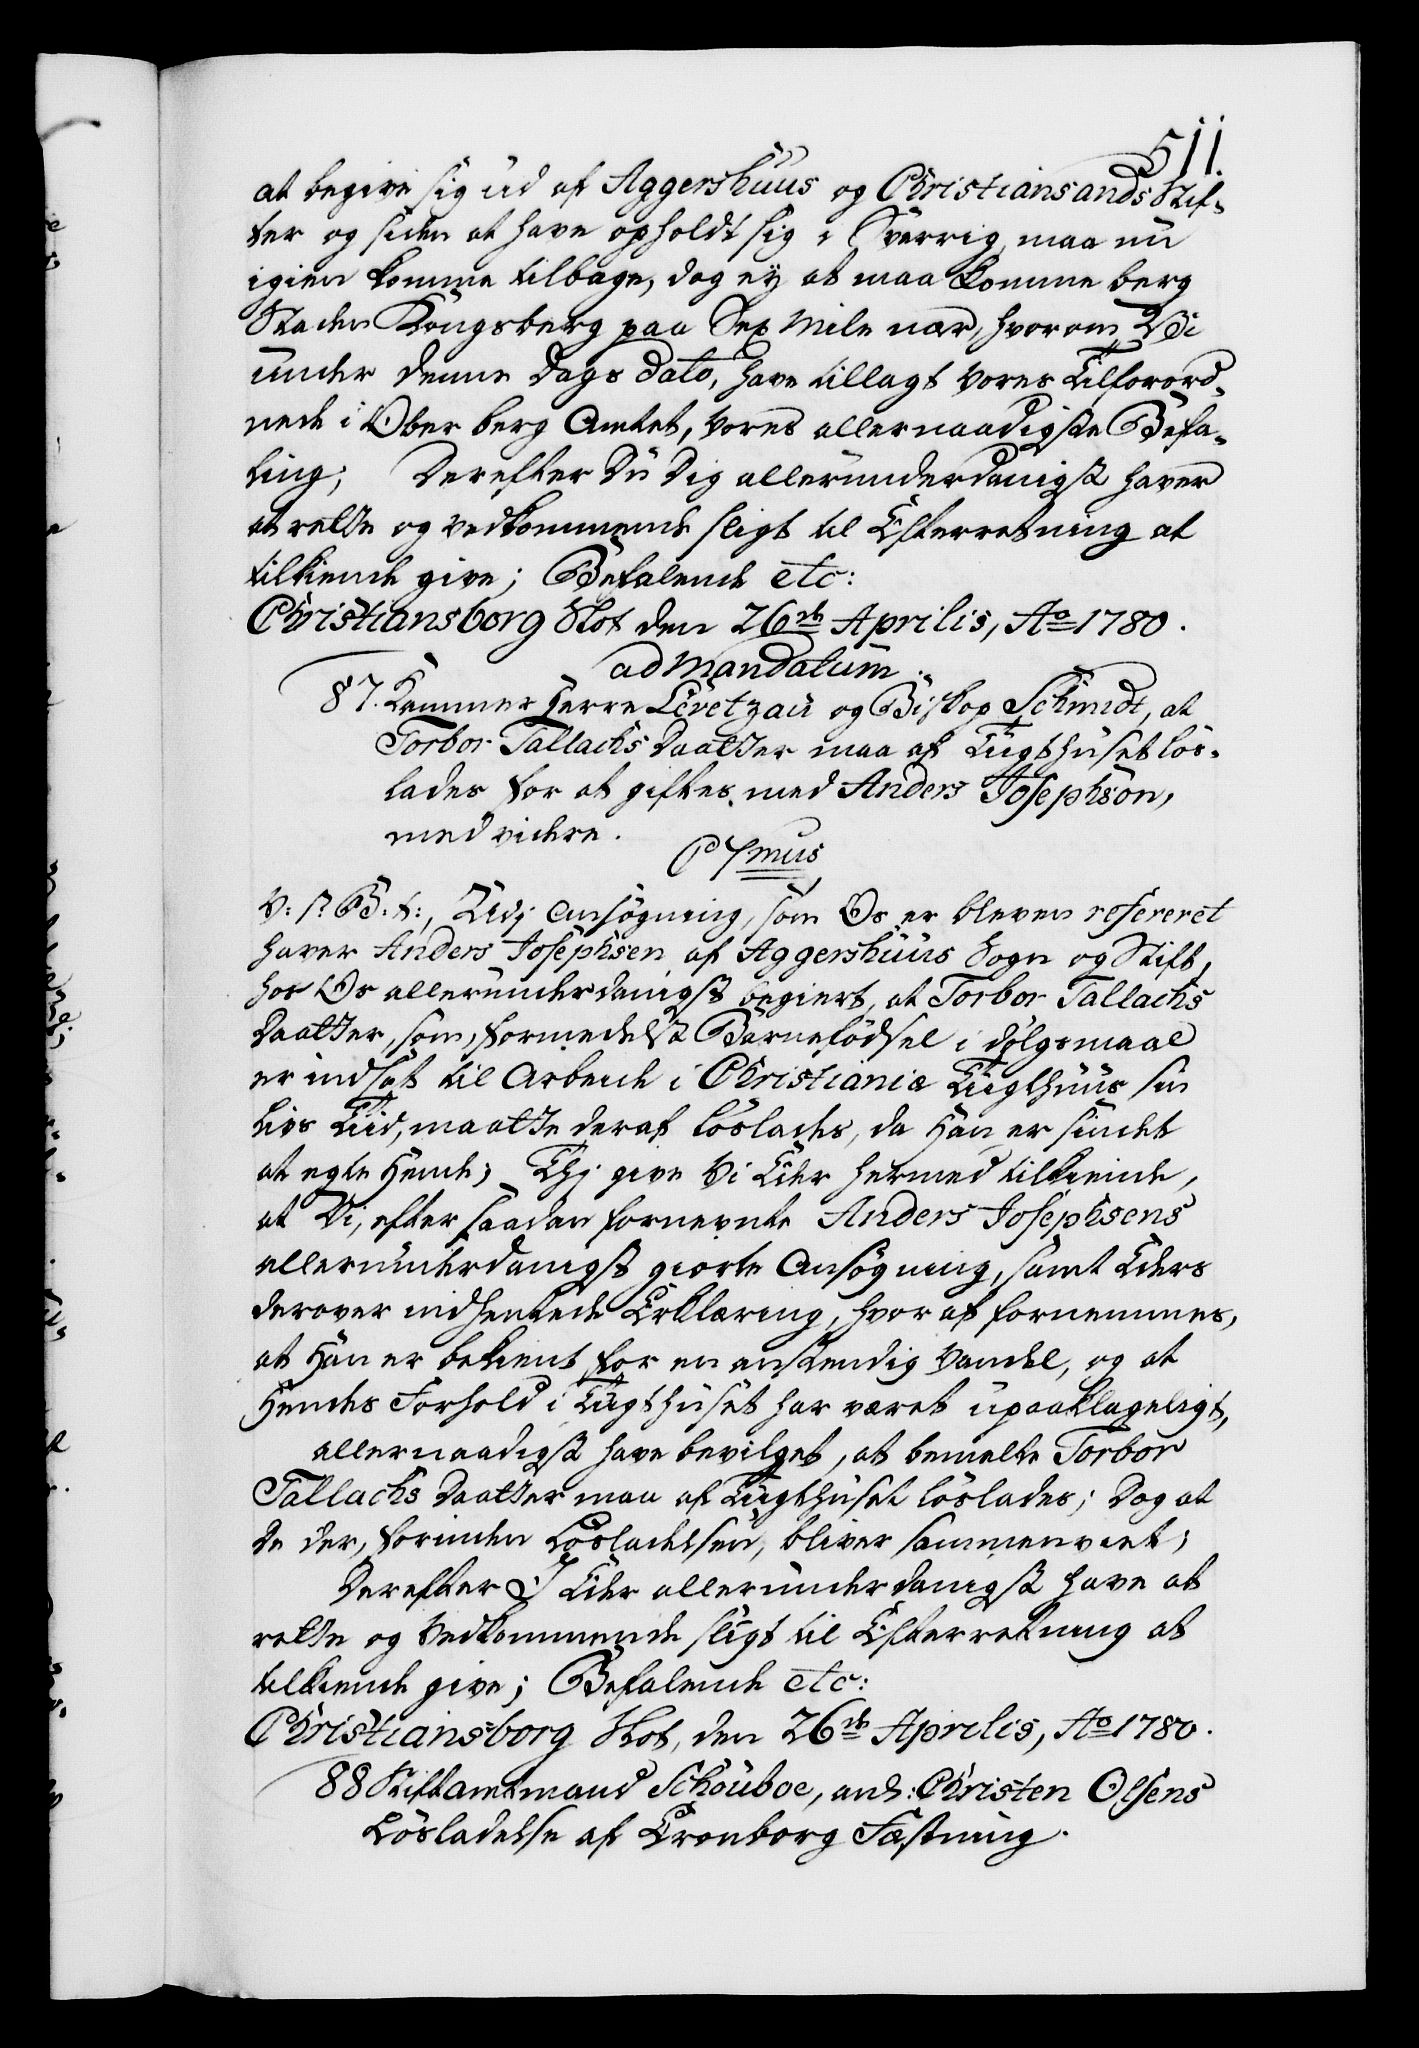 511.
at begive sig ud af Aggershuus og Christiansands Stif-
ter og siden at have opholdt sig i Sverrig, maa nu
igien komme tilbage, dog ey at maa komme berg
Staden Kongsberg paa Sex Mile nær, hvorom Vi
under denne Dags dato, have tillagt vores Tilforord-
nede i Ober berg Amtet, vores allernaadigste Befa-
ling; Derefter Du Dig allerunderdanigst haver
at rette og vedkommende sligt til Efterretning at
tilkiende give; Befalende etc:
Christiansborg Slot den 26de Aprilis, Ao 1780.
ad Mandatum.
87. Kammer Herre Levetzau og Biskop Schmidt, at
Torbor Tallachs Daatter maa af Tugthuset lös-
lades for at giftes med Anders Josephsön,
med videre.
C 7mus
V: s: G: t:, Udj Ansögning, som Os er bleven refereret
haver Anders Josephsen af Aggershuus Sogn og Stift,
hos Os allerunderdanigst begiert, at Torbor Tallachs
Daatter, som, formedelst Barnefödsel i dölgsmaal
er indsat til Arbeide i Christiania Tugthuus sin
Livs Tiid, maatte deraf löslades, da Han er sindet
at egte Hende; Thj give Vi Eder hermed tilkiende,
at Vi, efter saadan fornevnte Anders Josephsens
allerunderdanigst giorte Ansögning, samt Eders
derover indhentede Erklæring, hvoraf fornemmes,
at Han er bekient for en anstendig Vandel, og at
Hendes Forhold i Tugthuset har været upaaklageligt,
allernaadigst have bevilget, at bemelte Torbor
Tallachs Daatter maa af Tugthuset löslades; Dog at
de der, forinden Lösladelsen, bliver sammenviet;
Derefter I Eder allerunderdanigst have at
rette og Vedkommende sligt til Efterretning at
tilkiende give; Befalende etc:
Christiansborg Slot, den 26de Aprilis, Ao 1780.
88 Stiftamtmand Schouboe, anl: Christen Olsens
Lösladelse af Cronborg Fæstning.